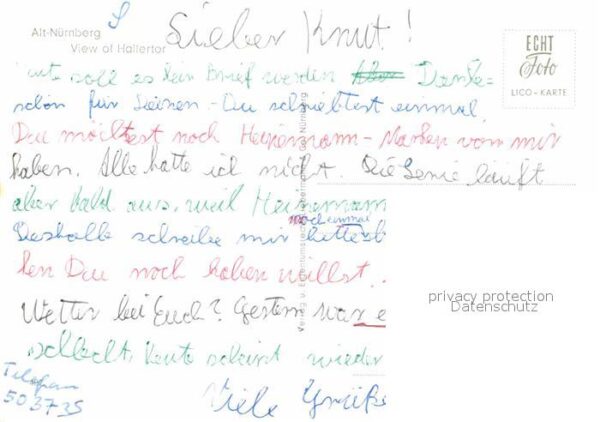 Alt-Nürnberg
View of Hallertor
Lieber Knut!
ECHT
Foto
LICO-KARTE
soll es kein Brief werden Danke-
schön für Deinen - Du schriebtest einmal,
Du möchtest noch Heinemann-Marken von mir
haben. Alle hatte ich nicht. Die Serie läuft
aber bald aus, weil Heinemann
Deshalb schreibe mir noch einmal bitte
ken Du noch haben willst.
Wetter bei Euch? Gestern war e
schlecht, heute scheint wieder
Viele Grüße
Telefon
503735
privacy protection
Datenschutz